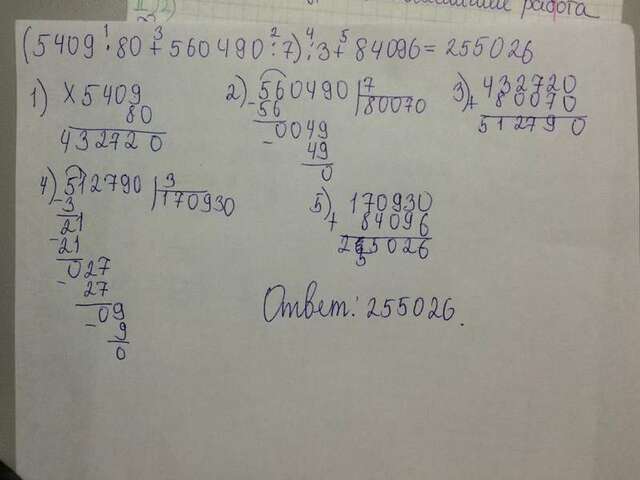 работа
(5409 · 80 + 560490 : 7) : 3 + 84096 = 255026
1 3 2 4 5
1) × 5409
80
432720
2) 560490 | 7
- 56 80070
0049
- 49
0
3) 432720
+ 80070
512790
4) 512790 | 3
- 3 170930
21
- 21
027
- 27
09
- 9
0
5) 170930
+ 84096
255026
Ответ: 255026.